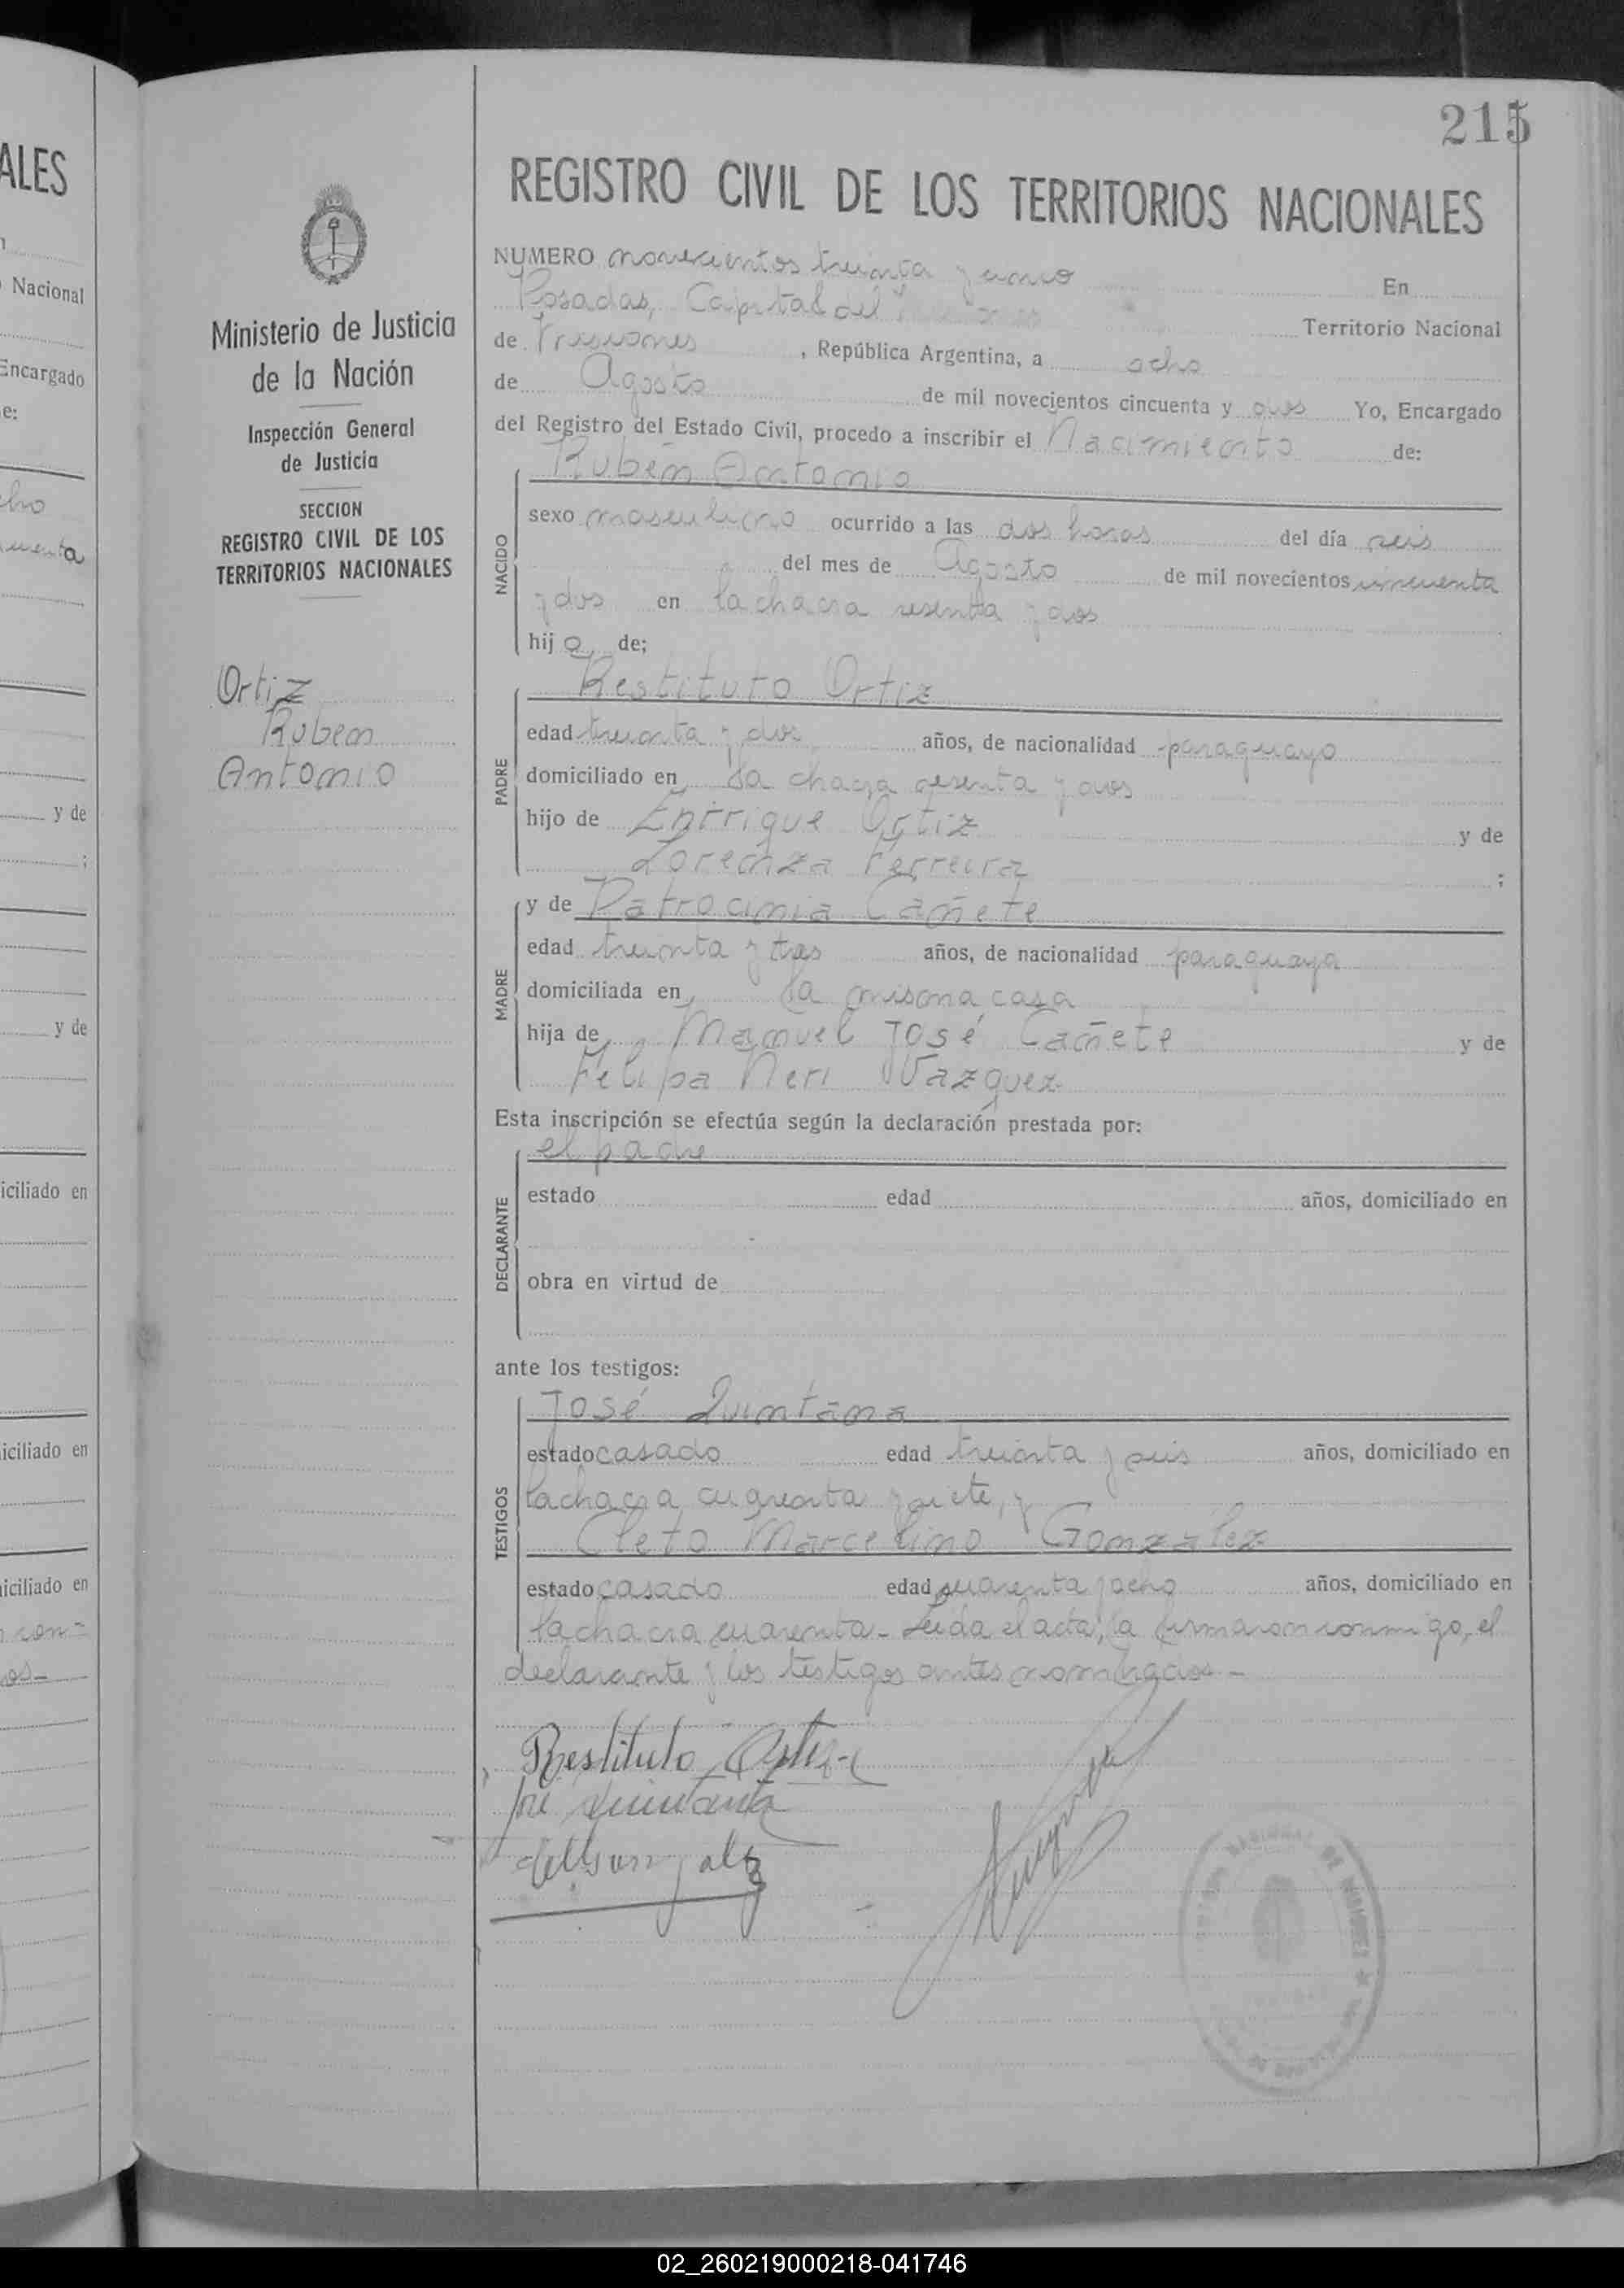 215
ALES
Nacional
Encargado
e:
cho
y de
;
y de
iciliado en
iciliado en
iciliado en
Ministerio de Justicia
de la Nación
Inspección General
de Justicia
SECCION
REGISTRO CIVIL DE LOS
TERRITORIOS NACIONALES
Ortiz
Ruben
Antonio
REGISTRO CIVIL DE LOS TERRITORIOS NACIONALES
NUMERO novecientos treinta y uno En
Posadas, Capital del Territorio Nacional
de Misiones, República Argentina, a ocho
de Agosto de mil novecientos cincuenta y dos Yo, Encargado
del Registro del Estado Civil, procedo a inscribir el Nacimiento de:
Rubén Antonio
NACIDO
sexo masculino ocurrido a las dos horas del día seis
del mes de Agosto de mil novecientos cincuenta
y dos en la chacra sesenta y dos
hijo de;
Restituto Ortiz
PADRE
edad treinta y dos años, de nacionalidad paraguayo
domiciliado en la chacra sesenta y dos
hijo de Enrrique Ortiz y de
Lorenza Ferreira ;
y de Patrocinia Cañete
MADRE
edad treinta y tres años, de nacionalidad paraguaya
domiciliada en la misma casa
hija de Manuel José Cañete y de
Felipa Neri Vazquez
Esta inscripción se efectúa según la declaración prestada por:
el padre
DECLARANTE
estado edad años, domiciliado en
obra en virtud de
ante los testigos:
José Quintana
TESTIGOS
estado casado edad treinta y seis años, domiciliado en
la chacra cuarenta y siete, y
Cleto Marcelino González
estado casado edad cuarenta y ocho años, domiciliado en
la chacra cuarenta- Leida el acta, la firmaron conmigo, el
declarante y los testigos antes nombrados-
Restituto Ortiz
José Quintana
02_260219000218-041746